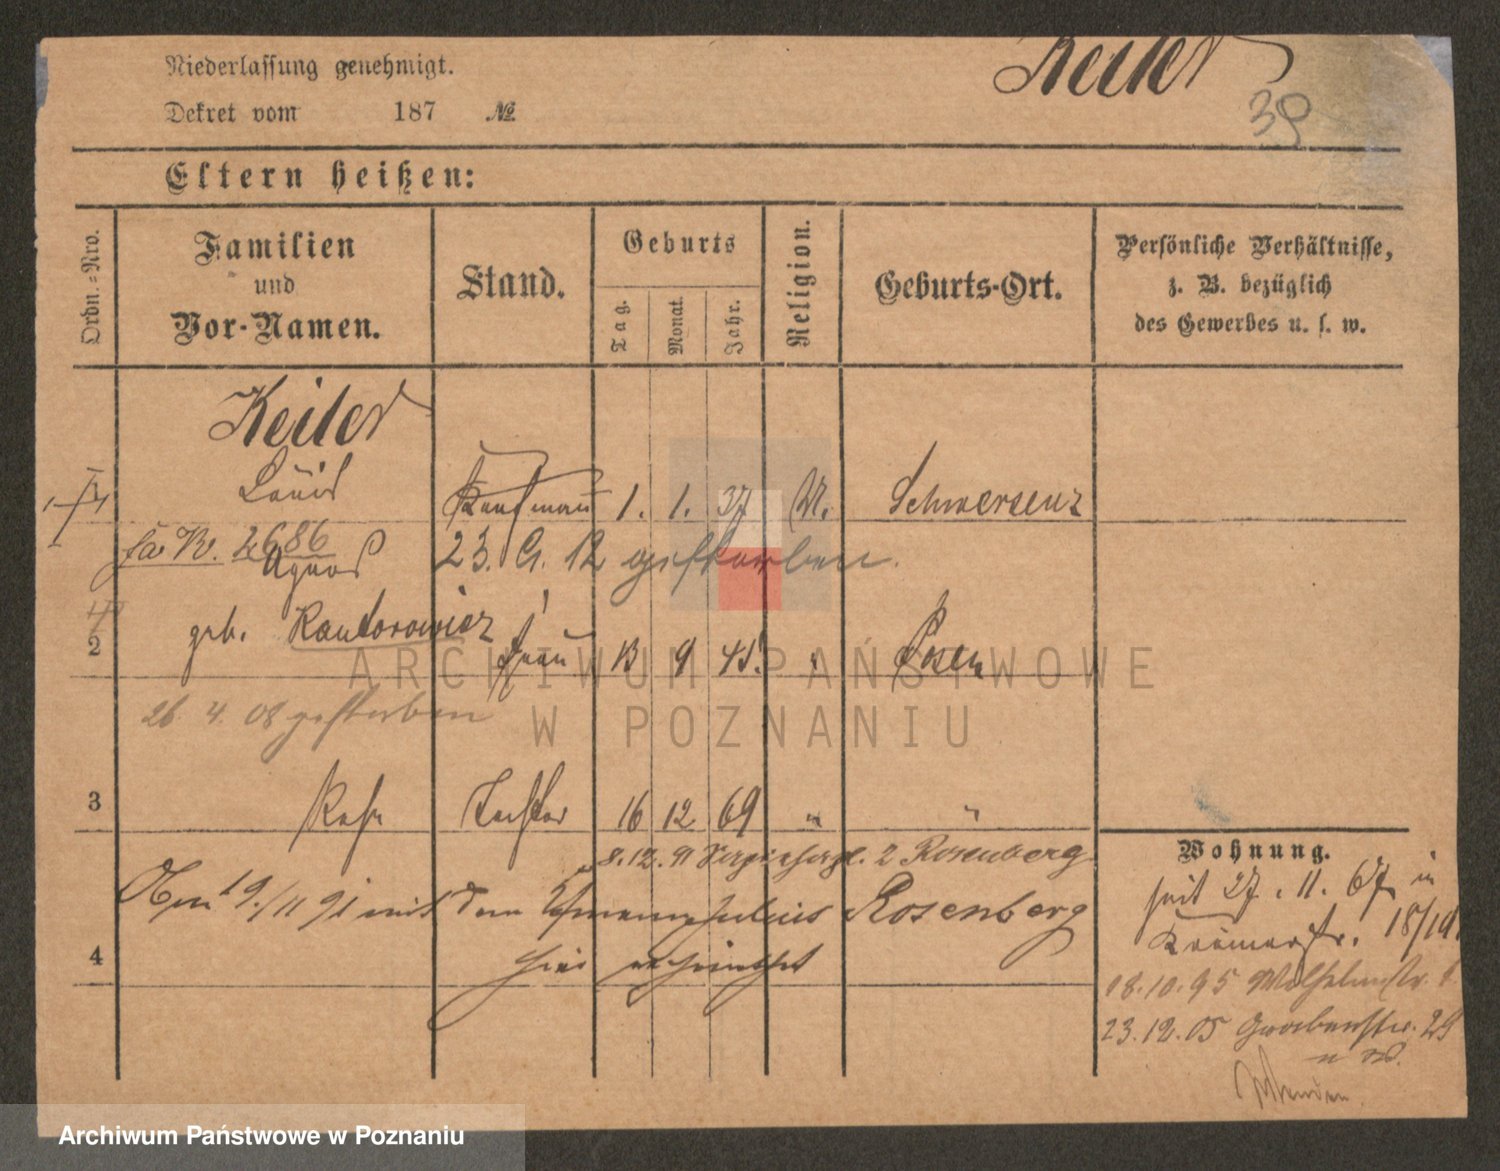 Niederlassung genehmigt.
Keiler
Dekret vom 187 №
39
Eltern heißen:
Ordn.=Nro.
Familien
und
Vor-Namen.
Stand.
Geburts
Tag.
Monat.
Jahr.
Religion.
Geburts-Ort.
Persönliche Verhältnisse,
z. B. bezüglich
des Gewerbes u. s. w.
Keiler
1 Louis Kaufmann 1. 1. 37 M. Schwersenz
2686
23. 9. 12 gestorben.
Agnes
2 geb. Kantorowicz Frau 13 9 45. " Posen
26. 4. 08 gestorben
3 Tochter 16 12 69 " "
8.12.91 2 Rosenberg
19./11 91 mit dem Julius Rosenberg
4 hier
Wohnung.
seit 27. 11. 67 in
Krämerstr. 18/19.
18.10.95 Wilhelmstr.
23.12.05 Grabenstr. 29
ARCHIWUM PAŃSTWOWE
W POZNANIU
Archiwum Państwowe w Poznaniu